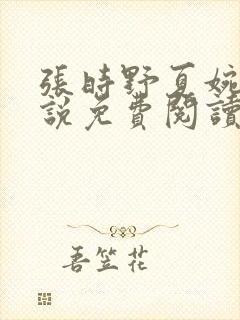 張時野夏婉
說免費閱讀
吾笠花